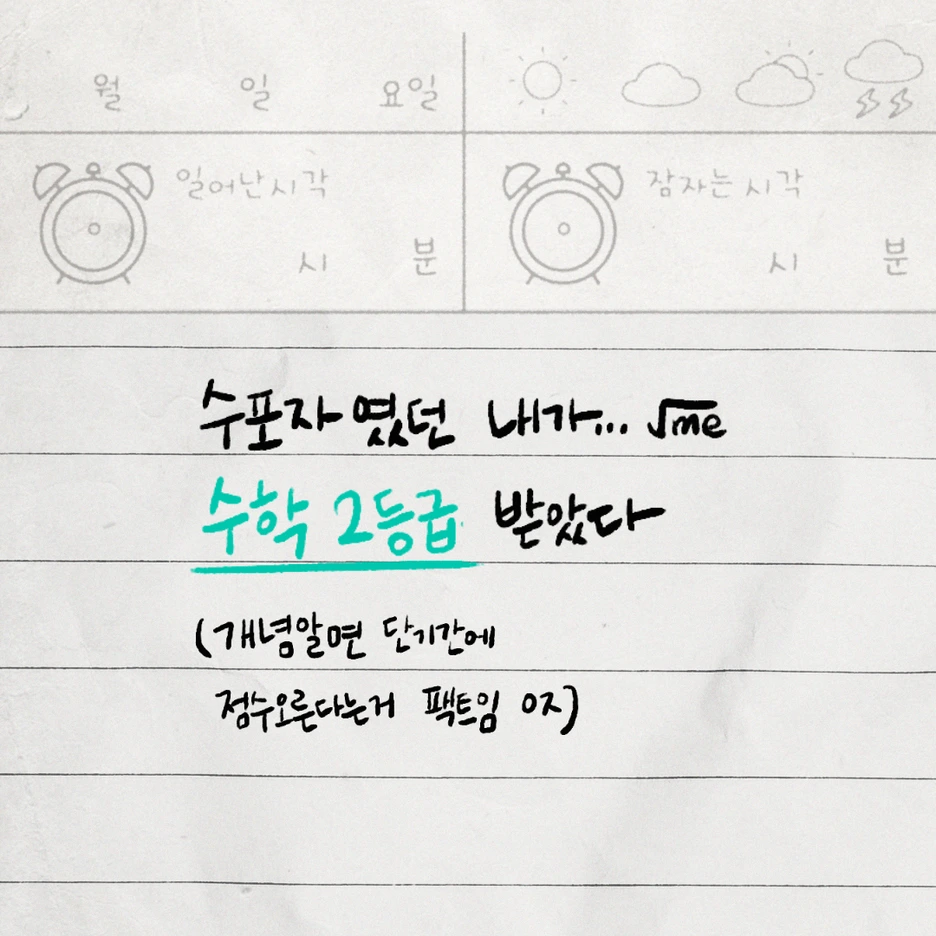 월 일 요일
일어난시각 잠자는 시각
시 분 시 분
수포자였던 내가... √me
수학 2등급 받았다
(개념알면 단기간에
점수오른다는거 팩트임 ㅇㅈ)